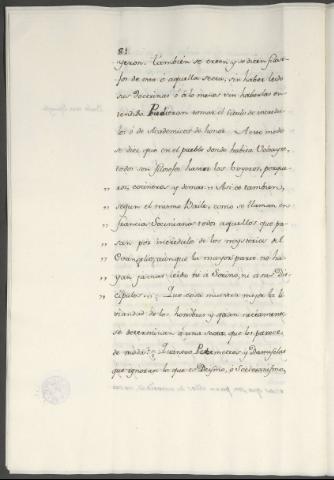 81
yeron. Tambien se creen y se dicen filoso-
fos de esta ó aquella secta, sin haber leido
sus doctrinas ó á lo menos sin haberlas en-
tendido. Pudieran tomar el titulo de incredu-
los ó de Academicos de honor. A este modo
se dice que en el pueblo donde habita
todos son filosofos hasta los
ros, cocineros y demas. Asi es tambien,
segun el mismo Baile, como se llaman en
Francia Socinianos todos aquellos que pa-
san por incredulos de los mysterios del
Evangelio, aunque la mayor parte no ha-
yan jamas leido ni á Socino, ni á sus Dis-
cipulos. Que cosa muestra mejor la li-
viandad de los hombres y quan vanamente
se determinan á una secta que les parece
de moda? Quantos Petimetres y Damiselas
que ignoran lo que es Deismo, ó Socinianismo,